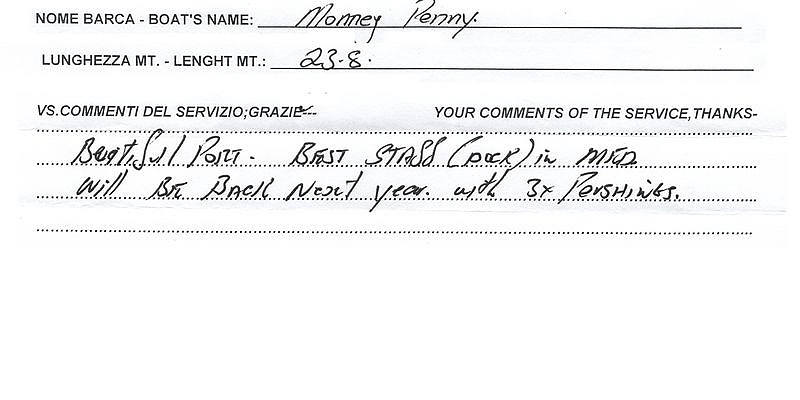 NOME BARCA - BOAT'S NAME: Monney Penny.
LUNGHEZZA MT. - LENGHT MT.: 23.8.
VS.COMMENTI DEL SERVIZIO;GRAZIE--- YOUR COMMENTS OF THE SERVICE,THANKS-
Beutiful PORT. BEST STAFF (DOCK) in MED
Will BE BACK Next year. with 3x PERSHINGS.